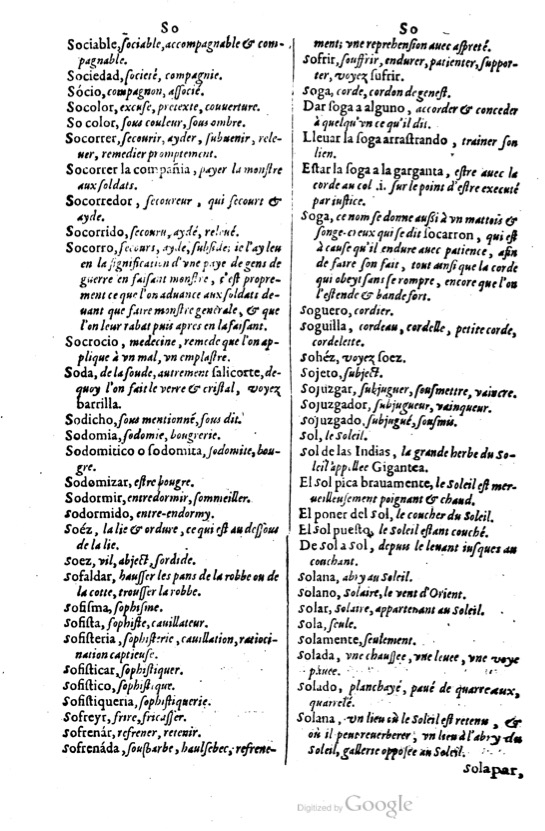 So
Sociable, ſociable, accompagnable & com-
pagnable.
Sociedad, ſocieté, compagnie.
Sócio, compagnon, aſſocié.
Socolor, excuſe, pretexte, couuerture.
So color, ſous couleur, ſous ombre.
Socorrer, ſecourir, ayder, ſubuenir, rele-
uer, remedier promptement.
Socorrer la compañia, payer la monſtre
aux ſoldats.
Socorredor, ſecoureur, qui ſecourt &
ayde.
Socorrido, ſecouru, aydé, releué.
Socorro, ſecours, ayde, ſubſide; ie l'ay leu
en la ſignification d'vne paye de gens de
guerre en faiſant monſtre, c'eſt propre-
ment ce que l'on aduance aux ſoldats de-
uant que faire monſtre generale, & que
l'on leur rabat puis apres en la faiſant.
Socrocio, medecine, remede que l'on ap-
plique à vn mal, vn emplaſtre.
Soda, de la ſoude, autrement ſalicorte, de-
quoy l'on fait le verre & criſtal, voyez
barrilla.
Sodicho, ſous mentionné, ſous dit.
Sodomia, ſodomie, bougrerie.
Sodomitico o ſodomita, ſodomite, bou-
gre.
Sodomizar, eſtre bougre.
Sodormir, entredormir, ſommeiller.
sodormido, entre-endormy.
Soéz, la lie & ordure, ce qui eſt au deſſous
de la lie.
Soez, vil, abiect, ſordide.
sofaldar, hauſſer les pans de la robbe ou de
la cotte, trouſſer la robbe.
Sofiſma, ſophiſme.
Sofiſta, ſophiſte, cauillateur.
Sofiſteria, ſophiſterie, cauillation, ratioci-
nation captieuſe.
Sofiſticar, ſophiſtiquer.
Sofiſtico, ſophiſtique.
Sofiſtiqueria, ſophiſtiquerie.
Sofreyr, frire, fricaſſer.
Sofrenár, refrener, retenir.
Sofrenáda, ſouſbarbe, hauſſebec, refrene-
So
ment; vne reprehenſion auec aſpreté.
Sofrir, ſouffrir, endurer, patienter, ſuppor-
ter, voyez ſufrir.
Soga, corde, cordon de geneſt.
Dar ſoga a alguno, accorder & conceder
à quelqu'vn ce qu'il dit.
Lleuar la ſoga arraſtrando, trainer ſon
lien.
Eſtar la ſoga a la garganta, eſtre auec la
corde au col .i. ſur le point d'eſtre executé
par iuſtice.
Soga, ce nom ſe donne außi à vn mattois &
ſonge-creux qui ſe dit ſocarron, qui eſt
à cauſe qu'il endure auec patience, afin
de faire ſon fait, tout ainſi que la corde
qui obeyt ſans ſe rompre, encore que l'on
l'eſtende & bande fort.
Soguero, cordier.
soguilla, cordeau, cordelle, petite corde,
cordelette.
Sohéz, voyez ſoez.
Sojeto, ſubject.
Sojuzgar, ſubjuguer, ſouſmettre, vaincre.
Sojuzgador, ſubjugueur, vainqueur.
sojuzgado, ſubjugué, ſouſmis.
Sol, le Soleil.
Sol de las Indias, la grande herbe du So-
leil appellee Gigantea.
El Sol pica brauamente, le Soleil eſt mer-
ueilleuſement poignant & chaud.
El poner del Sol, le coucher du Soleil.
El Sol pueſto, le Soleil eſtant couché.
De sol a sol, depuis le leuant iuſques au
couchant.
Solana, abry au Soleil.
Solano, Solaire, le vent d'Orient.
Solar, Solaire, appartenant au Soleil.
Sola, ſeule.
Solamente, ſeulement.
Solada, vne chauſſee, vne leuee, vne voye
pauee.
Solado, planchayé, paué de quarreaux,
quarrelé.
Solana, vn lieu où le Soleil eſt retenu, &
où il peut reuerberer, vn lieu à l'abry du
Soleil, gallerie oppoſée au Soleil.
solapar,
Digitized by Google